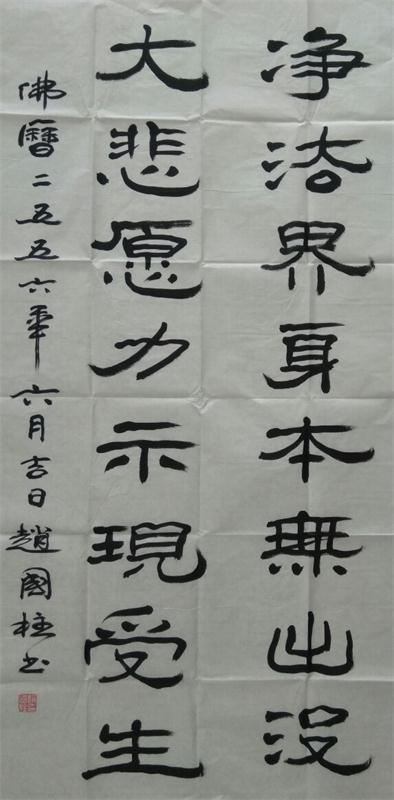 净法界身本無出没
大悲愿力示現受生
佛曆二五五六年六月吉日趙國柱书